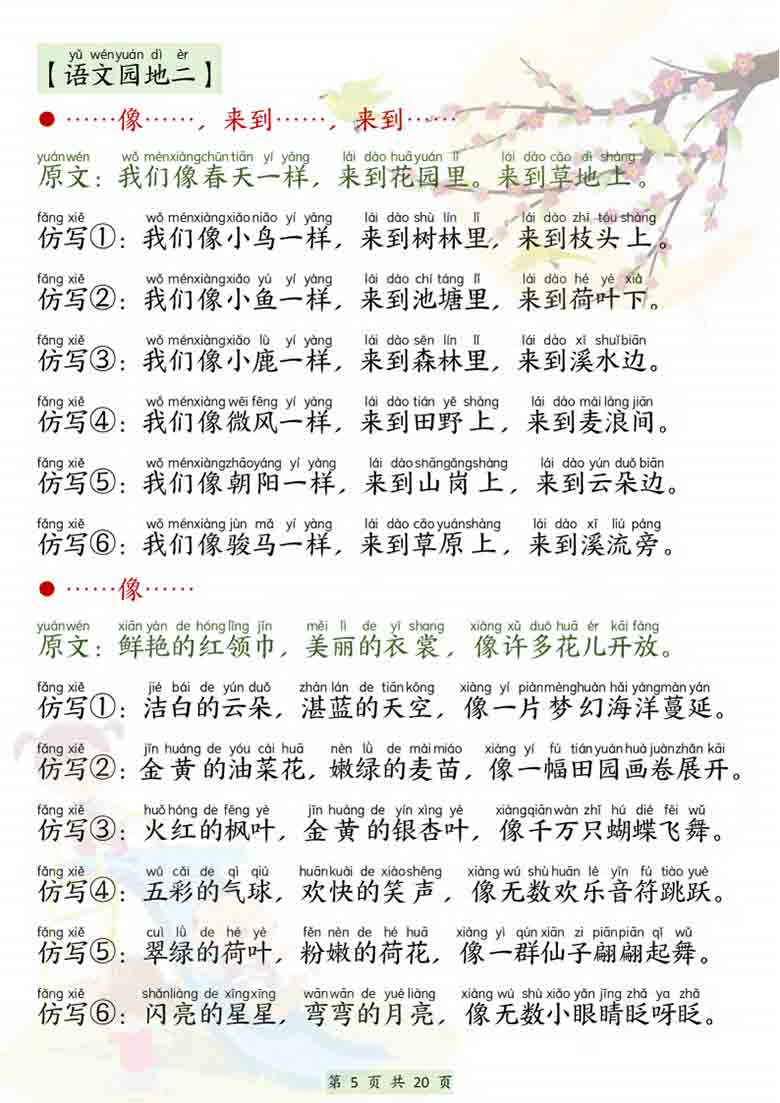 yǔ wényuán dì èr
【语文园地二】
●……像……，来到……，来到……
yuánwén wǒ ménxiàngchūntiān yí yàng lái dào huāyuán lǐ lái dào cǎo dì shàng
原文：我们像春天一样，来到花园里。来到草地上。
fǎng xiě wǒ ménxiàngxiǎoniǎo yí yàng lái dào shù lín lǐ lái dào zhī tóu shàng
仿写①：我们像小鸟一样，来到树林里，来到枝头上。
fǎng xiě wǒ ménxiàngxiǎo yú yí yàng lái dào chí táng lǐ lái dào hé yè xià
仿写②：我们像小鱼一样，来到池塘里，来到荷叶下。
fǎng xiě wǒ ménxiàngxiǎo lù yí yàng lái dào sēn lín lǐ lái dào xī shuǐbiān
仿写③：我们像小鹿一样，来到森林里，来到溪水边。
fǎng xiě wǒ ménxiàng wēi fēng yí yàng lái dào tián yě shàng lái dào mài làng jiān
仿写④：我们像微风一样，来到田野上，来到麦浪间。
fǎng xiě wǒ ménxiàngzhāoyáng yí yàng lái dào shāngǎngshàng lái dào yún duǒ biān
仿写⑤：我们像朝阳一样，来到山岗上，来到云朵边。
fǎng xiě wǒ ménxiàng jùn mǎ yí yàng lái dào cǎoyuánshàng lái dào xī liú páng
仿写⑥：我们像骏马一样，来到草原上，来到溪流旁。
●……像……
yuánwén xiān yàn de hónglǐng jīn měi lì de yī shang xiàng xǔ duō huā ér kāi fàng
原文：鲜艳的红领巾，美丽的衣裳，像许多花儿开放。
fǎng xiě jié bái de yún duǒ zhàn lán de tiānkōng xiàng yí piànmènghuàn hǎi yángmànyán
仿写①：洁白的云朵，湛蓝的天空，像一片梦幻海洋蔓延。
fǎng xiě jīn huáng de yóu cài huā nèn lǜ de mài miáo xiàng yì fú tiányuán huà juàn zhǎn kāi
仿写②：金黄的油菜花，嫩绿的麦苗，像一幅田园画卷展开。
fǎng xiě huǒ hóng de fēng yè jīn huáng de yín xìng yè xiàngqiānwàn zhǐ hú dié fēi wǔ
仿写③：火红的枫叶，金黄的银杏叶，像千万只蝴蝶飞舞。
fǎng xiě wǔ cǎi de qì qiú huānkuài de xiàoshēng xiàng wú shù huān lè yīn fú tiào yuè
仿写④：五彩的气球，欢快的笑声，像无数欢乐音符跳跃。
fǎng xiě cuì lǜ de hé yè fěn nèn de hé huā xiàng yì qún xiān zi piānpiān qǐ wǔ
仿写⑤：翠绿的荷叶，粉嫩的荷花，像一群仙子翩翩起舞。
fǎng xiě shǎnliàng de xīngxīng wānwān de yuè liàng xiàng wú shù xiǎo yǎn jīng zhǎ ya zhǎ
仿写⑥：闪亮的星星，弯弯的月亮，像无数小眼睛眨呀眨。
第 5 页 共 20 页